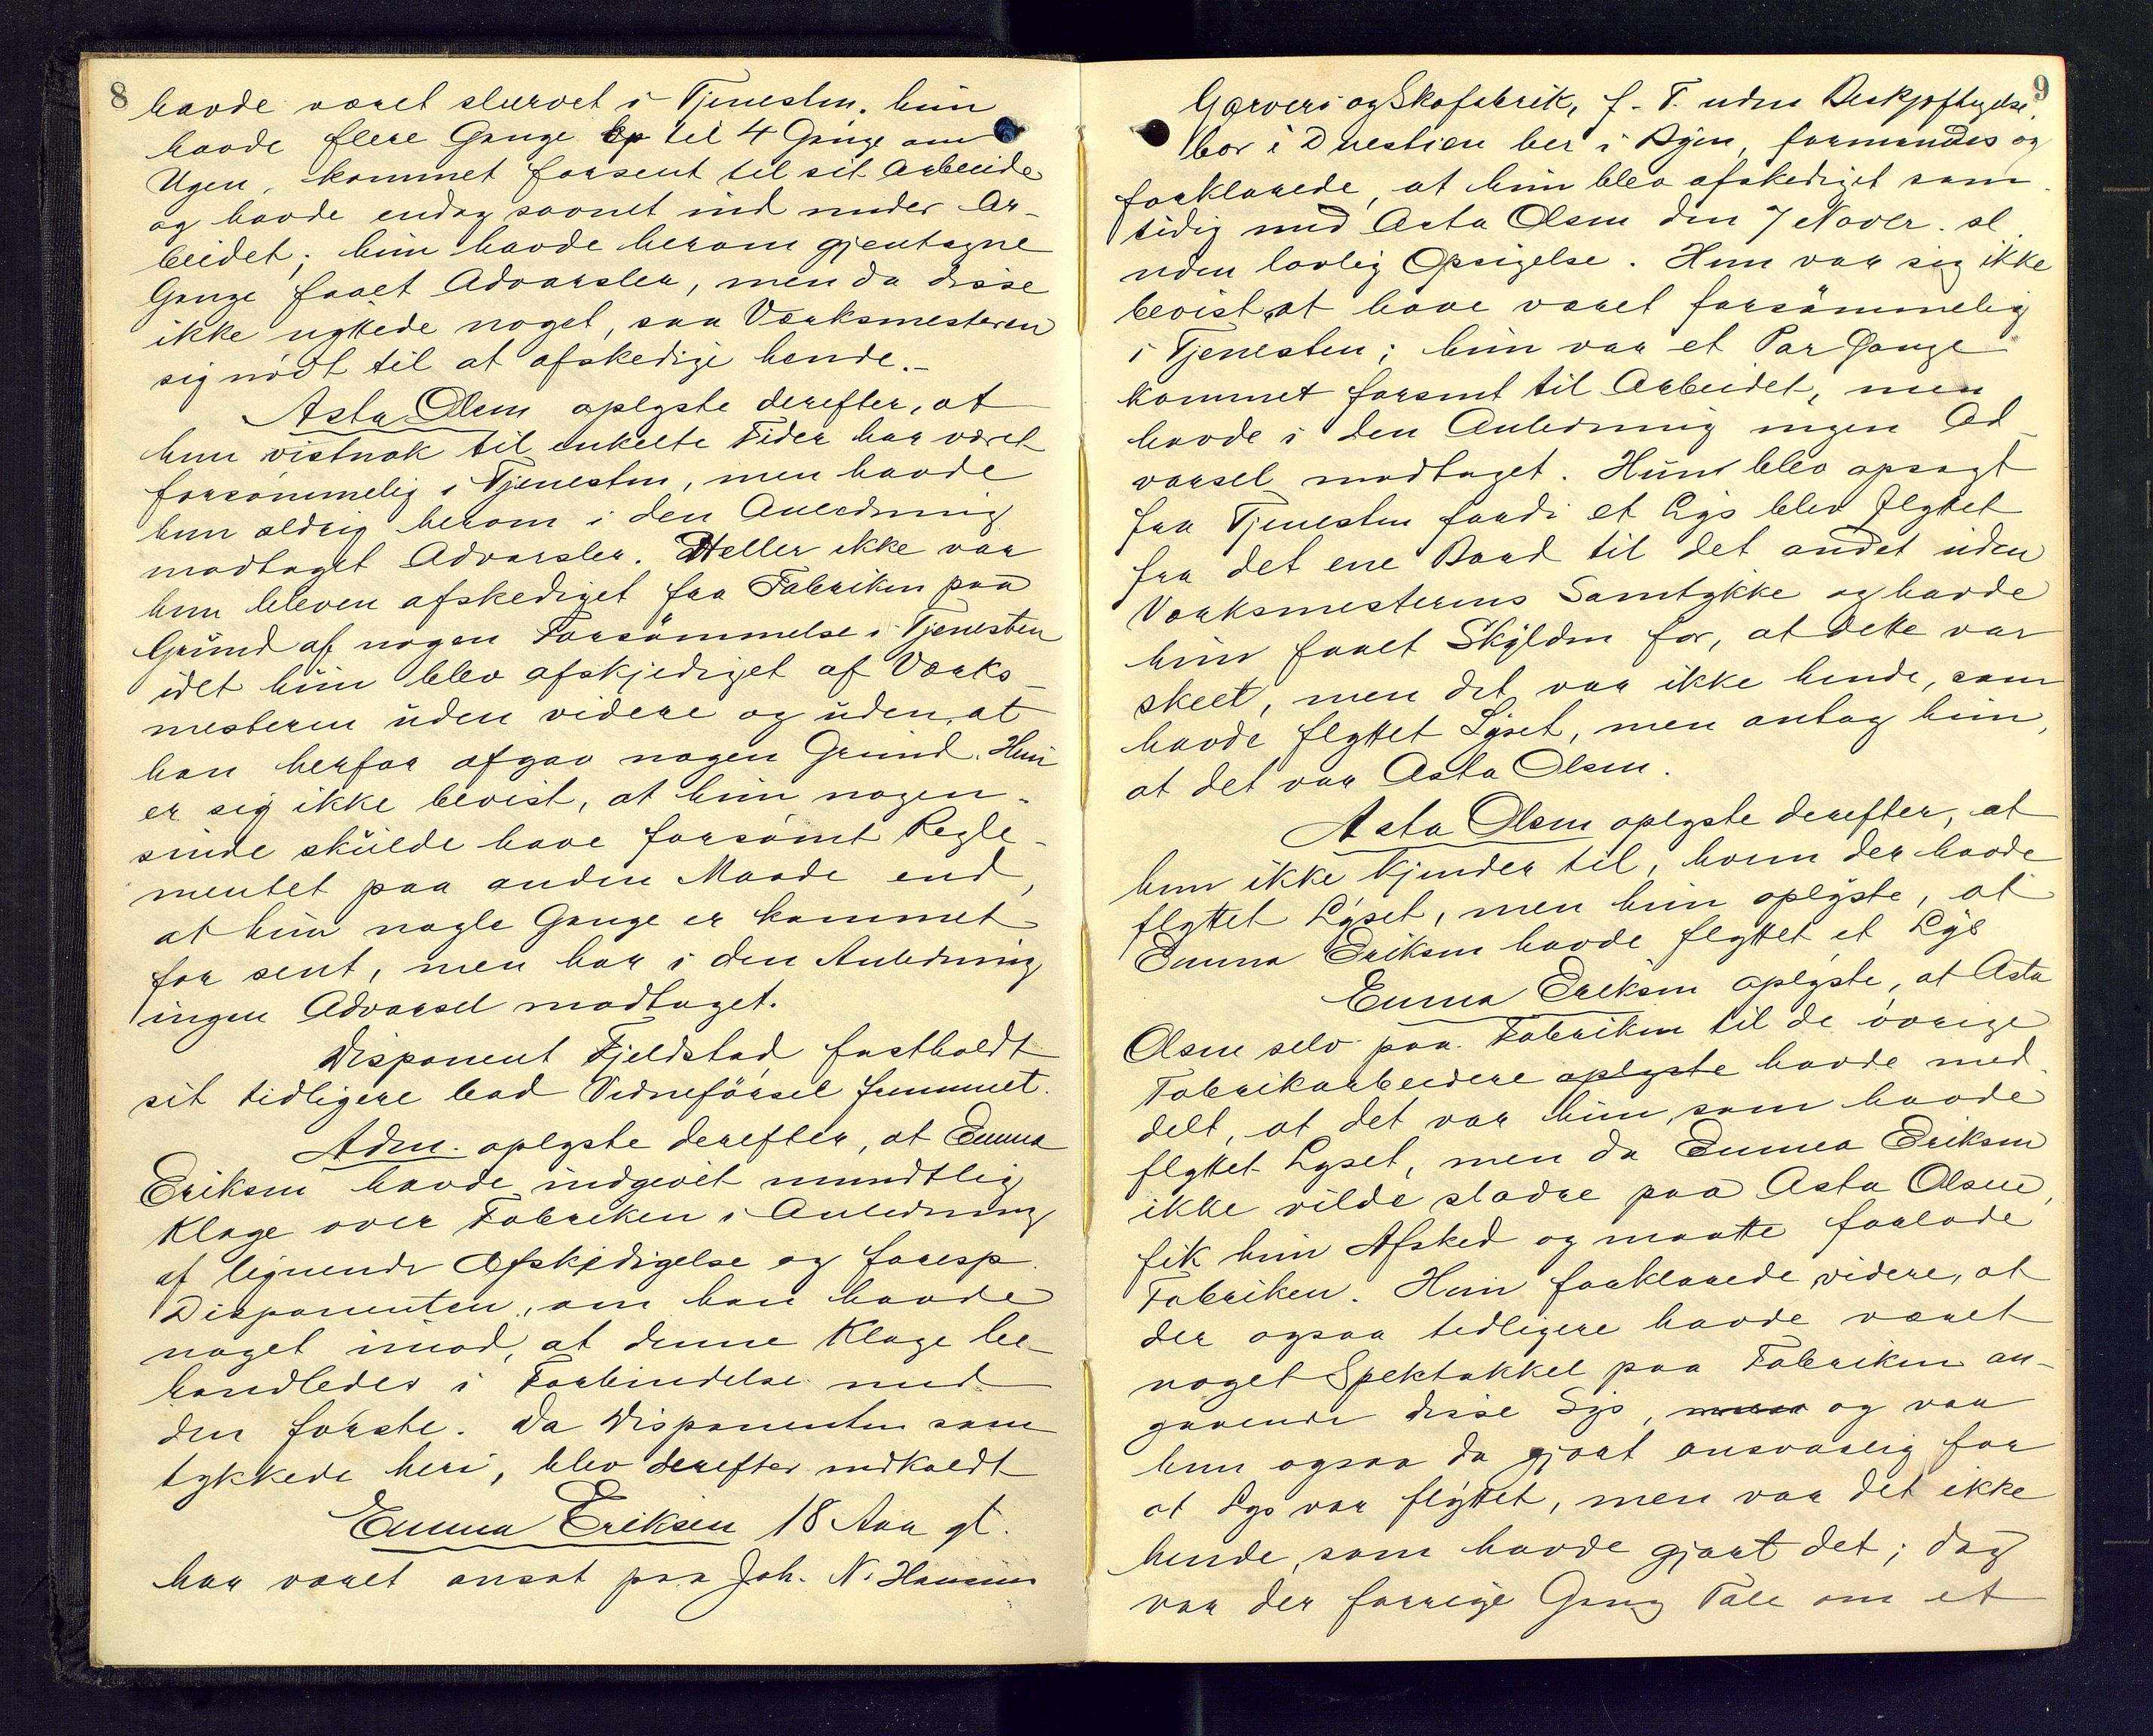 8
havde været slurvet i Tjenesten. hun
havde flere Gange op til 4 Gange om
Ugen, kommet forsent til sit Arbeide
og havde endog sovnet ind under Ar-
beidet; hun havde herom gjentagne
Gange faaet Advarsler, men da disse
ikke nyttede noget, saa Værksmesteren
sig nödt til at afskedige hende.-
Asta Olsen oplyste derefter, at
hun vistnok til enkelte Tider har været
forsömmelig i Tjenesten, men havde
hun aldrig herom i den Anledning
modtaget Advarsler. Heller ikke var
hun bleven afskediget fra Fabriken paa
Grund af nogen Forsömmelse i Tjenesten
idet hun blev afskjediget af Værks-
mesteren uden videre og uden, at
han herfor afgav nogen Grund. Hun
er sig ikke bevist, at hun nogen-
sinde skulde have forsömt Regle-
mentet paa anden Maade end,
at hun nogle Gange er kommet
for sent, men har i den Anledning
ingen Advarsel modtaget.
Disponent Fjeldstad fastholdt
sit tidligere bad Vidneförsel fremmet.
Adm. oplyste derefter, at Emma
Eriksen havde indgivet mundtlig
Klage over Fabriken i Anledning
af lignende Afskjedigelse og foresp.
Disponenten, om han havde
noget imod, at denne Klage be-
handledes i Forbindelse med
den förste. Da Disponenten sam
tykkede heri, blev derefter indkaldt
Emma Eriksen 18 Aar gl.
har været ansat paa Joh. N. Hansens
9
Garveri og Skofabrik, f. T. uden Beskjæftigelse,
bor i Duestien her i Byen, formandes og
forklarede, at hun blev afskediget sam
tidig med Asta Olsen den 7 Novbr. sl.
uden lovlig Opsigelse. Hun var sig ikke
bevist at have været forsömmelig
i Tjenesten; hun var et Par Gange
kommet forsent til Arbeidet, men
havde i den Anledning ingen Ad-
varsel modtaget. Hun blev opsagt
fra Tjenesten fordi et Lys blev flyttet
fra det ene Bord til det andet uden
Værksmesterens Samtykke og havde
hun faaet Skylden for, at dette var
skeet, men det var ikke hende, som
havde flyttet Lyset, men antog hun,
at det var Asta Olsen.
Asta Olsen oplyste derefter, at
hun ikke kjender til, hvem der havde
flyttet Lyset, men hun oplyste, at
Emma Eriksen havde flyttet et Lys
Emma Eriksen oplyste, at Asta
Olsen selv paa Fabriken til de övrige
Fabrikarbeidere oplyste havde med
delt, at det var hun, som havde
flyttet Lyset, men da Emma Eriksen
ikke vilde sladre paa Asta Olsen,
fik hun Afsked og maatte forlade
Fabriken. Hun forklarede videre, at
der ogsaa tidligere havde været
noget Spektakkel paa Fabriken an-
gaaende disse Lys, og var
hun ogsaa da gjort ansvarlig for
at Lys var flyttet, men var det ikke
hende, som havde gjort det; dog
var der forrige Gang Tale om et